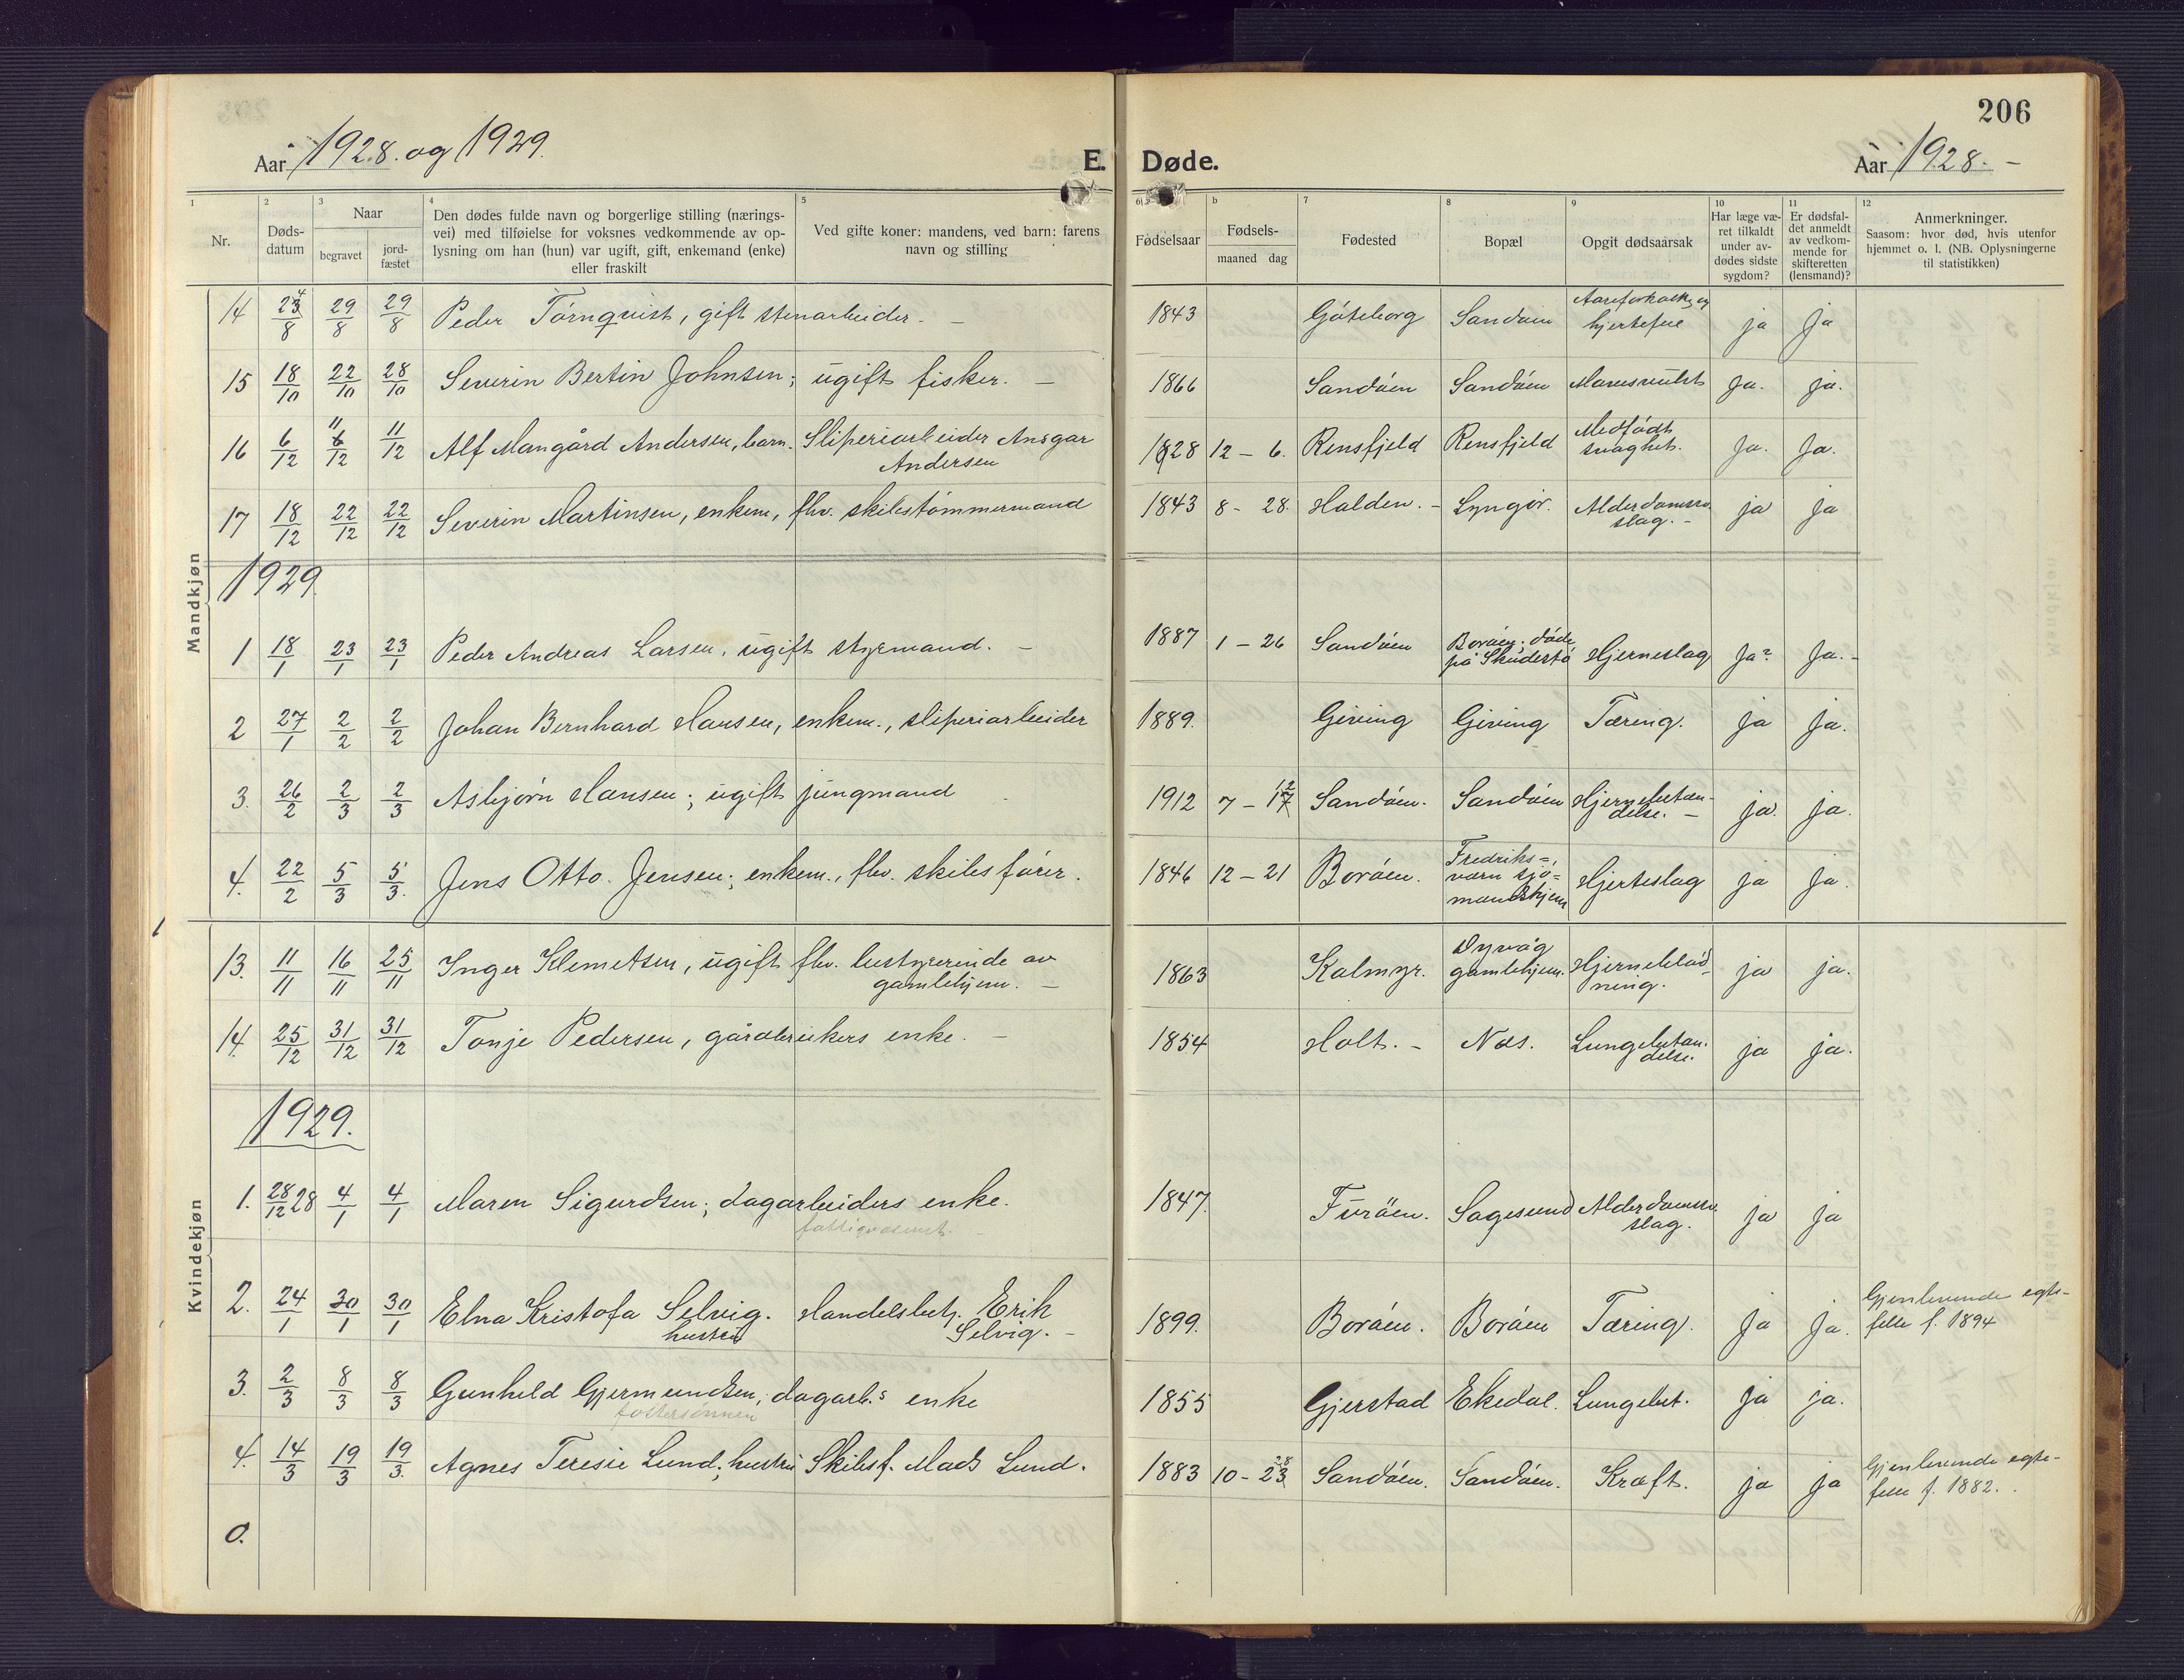 206
Aar 1928. og 1929.
E. Døde.
Aar 1928. –
1 Nr.
2 Døds-
datum
3 Naar
begravet
jord-
fæstet
4 Den dødes fulde navn og borgerlige stilling (nærings-
vei) med tilføielse for voksnes vedkommende av op-
lysning om han (hun) var ugift, gift, enkemand (enke)
eller fraskilt
5 Ved gifte koner: mandens, ved barn: farens
navn og stilling
6 Fødselsaar
b Fødsels-
maaned dag
7 Fødested
8 Bopæl
9 Opgit dødsaarsak
10 Har læge væ-
ret tilkaldt
under av-
dødes sidste
sygdom?
11 Er dødsfal-
det anmeldt
av vedkom-
mende for
skifteretten
(lensmand)?
12 Anmerkninger.
Saasom: hvor død, hvis utenfor
hjemmet o. l. (NB. Oplysningerne
til statistikken)
Mandkjøn
14 24/8 29/8 29/8 Peder Törnqvist, gift stenarbeider. – 1843 Göteborg Sandøen Aareforkalkn. og
hjertefeil ja ja
15 18/10 22/10 28/10 Severin Bertin Johnsen; ugift fisker. – 1866 Sandøen Sandøen Ja. ja.
16 6/12 11/12 11/12 Alf Mangård Andersen, barn. Sliperiarbeider Ansgar
Andersen 1928 12 – 6. Rensfjeld Rensfjeld Medfødt
svaghet. Ja. Ja.
17 18/12 22/12 22/12 Severin Martinsen, enkem, fhv. skibstømmermand 1843 8 - 28. Halden. – Lyngør. Alderdomssv.
slag. – ja ja
1929
1 18/1 23/1 23/1 Peder Andreas Larsen, ugift styrmand. – 1887 1 – 26 Sandøen Borøen; døde
på Skudestø Hjerneslag Ja? Ja. –
2 27/1 2/2 2/2 Johan Bernhard Hansen, enkem., sliperiarbeider 1889. Giving Giving Tæring. ja ja.
3. 26/2 2/3 2/3 Asbjørn Hansen; ugift jungmand 1912 7 – 12 Sandøen. Sandøen Hjernebetæn-
delse. – ja. ja.
4. 22/2 5/3 5/3. Jens Otto Jensen; enkem., fhv. skibsfører. 1846 12 – 21 Borøen. Fredriks=
værn sjø=
mandshjem Hjerteslag ja ja.
Kvindekjøn
13. 11/11 16/11 25/11 Inger Klemetsen, ugift fhv. bestyrerinde av
gamlehjem. – 1863 Kalmyr. Dypvåg
gamlehjem. Hjerneblød-
ning. ja ja.
14. 25/12 31/12 31/12 Tonje Pedersen, gårdbrukers enke. – 1854 Holt. – Næs. Lungebetæn.
delse. ja ja.
1929.
1. 28/12 28 4/1 4/1 Maren Sigurdsen; dagarbeiders enke.
fattigvesenet. 1847. Furöen. Sagesund Alderdomssv.
slag. ja ja
2. 24/1 30/1 30/1 Elna Kristofa Selvig.
hustru Handelsbetj. Erik
Selvig. – 1899. Borøen. Borøen Tæring. ja ja. Gjenlevende egte-
felle f. 1894
3. 2/3 8/3 8/3 Gunhild Gjermundsen, dagarb.s enke
fostersønnen 1855 Gjerstad Ekedal. Lungebet. ja ja.
4. 14/3 19/3 19/3. Agnes Teresie Lund; hustru Skibsf. Mads Lund. 1883 10 – 28 Sandøen. Sandøen. Kræft. ja ja Gjenlevende egte-
felle f. 1882.
0.